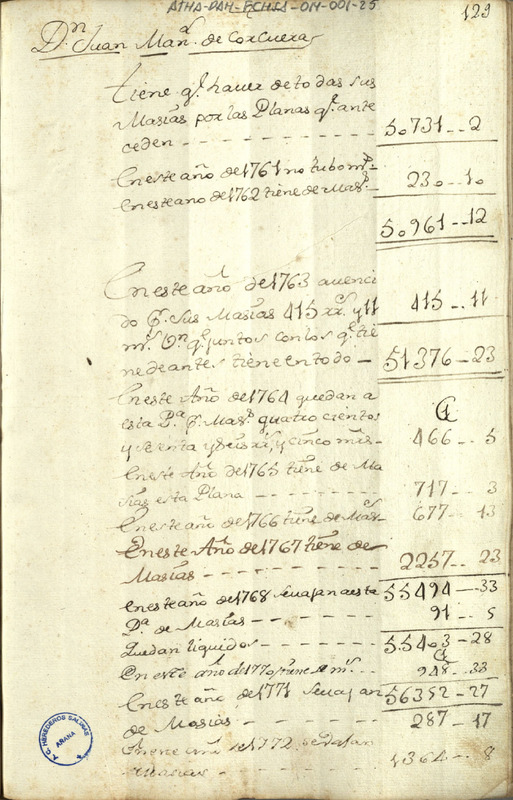 ATHA-DAH-FCHSA-OM-001-25
123
Dn Juan Manl de Corcuera
tiene qe haver de todas sus
Masias por las Planas qe ante
ceden - - - - - 50731 - - 2
En este año de 1761 no tubo ms
En este año de 1762 tiene de Mass - 230 - - 10
50961 - - 12
En este año de 1763 a venci
do Pr sus Masias 415 rrs y 11 415 - - 11
ms Vn qe juntos con los qe tie
ne de antes tiene en todo - 51376 - 23
En este Año de 1764 quedan a
esta Pa Pr Mass quatro cientos
y sesenta y seis rrs, y cinco mrs - 466 - - 5
En este Año de 1765 tiene de Ma
sias esta Plana - - - - - 717 - - 3
En este año de 1766 tiene de Mass - 677 - - 13
En este Año de 1767 tiene de
Masias - - - - - 2257 - - 23
55494 - 33
En este año de 1768 se vajan a esta
Pa de Masias - - - - 91 - - 5
Quedan liquidos - - - 55403 - 28
En este año de 1770 tiene 948 - 33
56352 - 27
En este año de 1771 se vajan
de Masias - - - - - 287 - 17
En este año de 1772
Masias - - - - 1364 - - 8
A.C. HEREDEROS SALINAS
ARANA